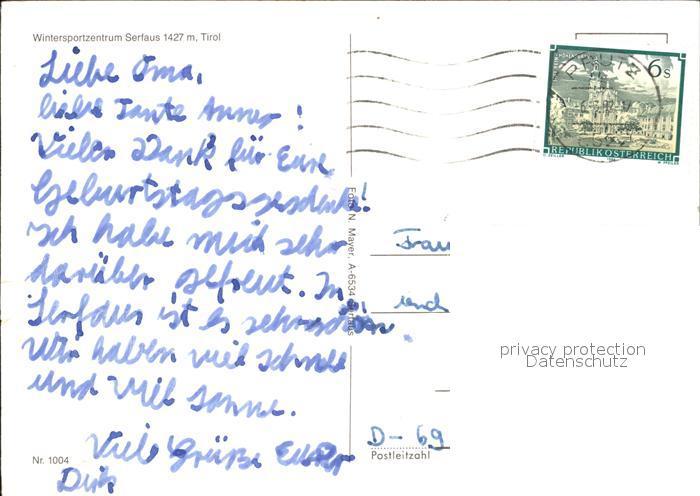 Wintersportzentrum Serfaus 1427 m, Tirol
Liebe Oma,
liebe Tante Anner!
Vielen Dank für Eure
Geburtstagsgeschenk!
Ich habe mich sehr
darüber gefreut. In
Serfaus ist es sehr schön.
Wir haben viel Schnee
und viel Sonne.
Viele Grüße Euer
Dirk
Nr. 1004
Foto N. Mayer, A-6534 Serfaus
6s
REPUBLIK ÖSTERREICH
PRUTZ
Frau
und
privacy protection
Datenschutz
D-69
Postleitzahl